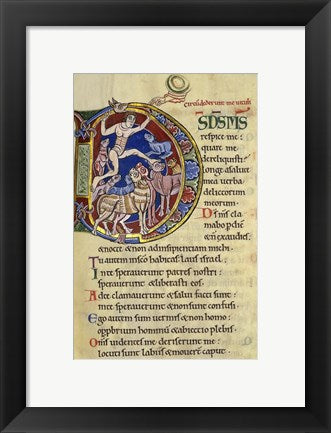 circūdederunt me vituli
DS̄DS̄M̄S
respice me :
quare me
dereliquisti :
longe a salute
mea verba
delictorum
meorum ·
Ds̄ m̄s cla
mabo p̄ diē
& ñ exaudies ·
& nocte & non ad insipientiam mihi ·
Tu autem in scō habitas laus israel ·
In te speraverunt patres nostri :
speraverunt & liberasti eos ·
Ad te clamaverunt & salvi facti sunt :
in te speraverunt & non sunt confusi ·
Ego autem sum vermis & non homo :
opprobrium hominū & abiectio plebis ·
Om̄s videntes me deriserunt me :
locuti sunt labiis & moverunt caput ·